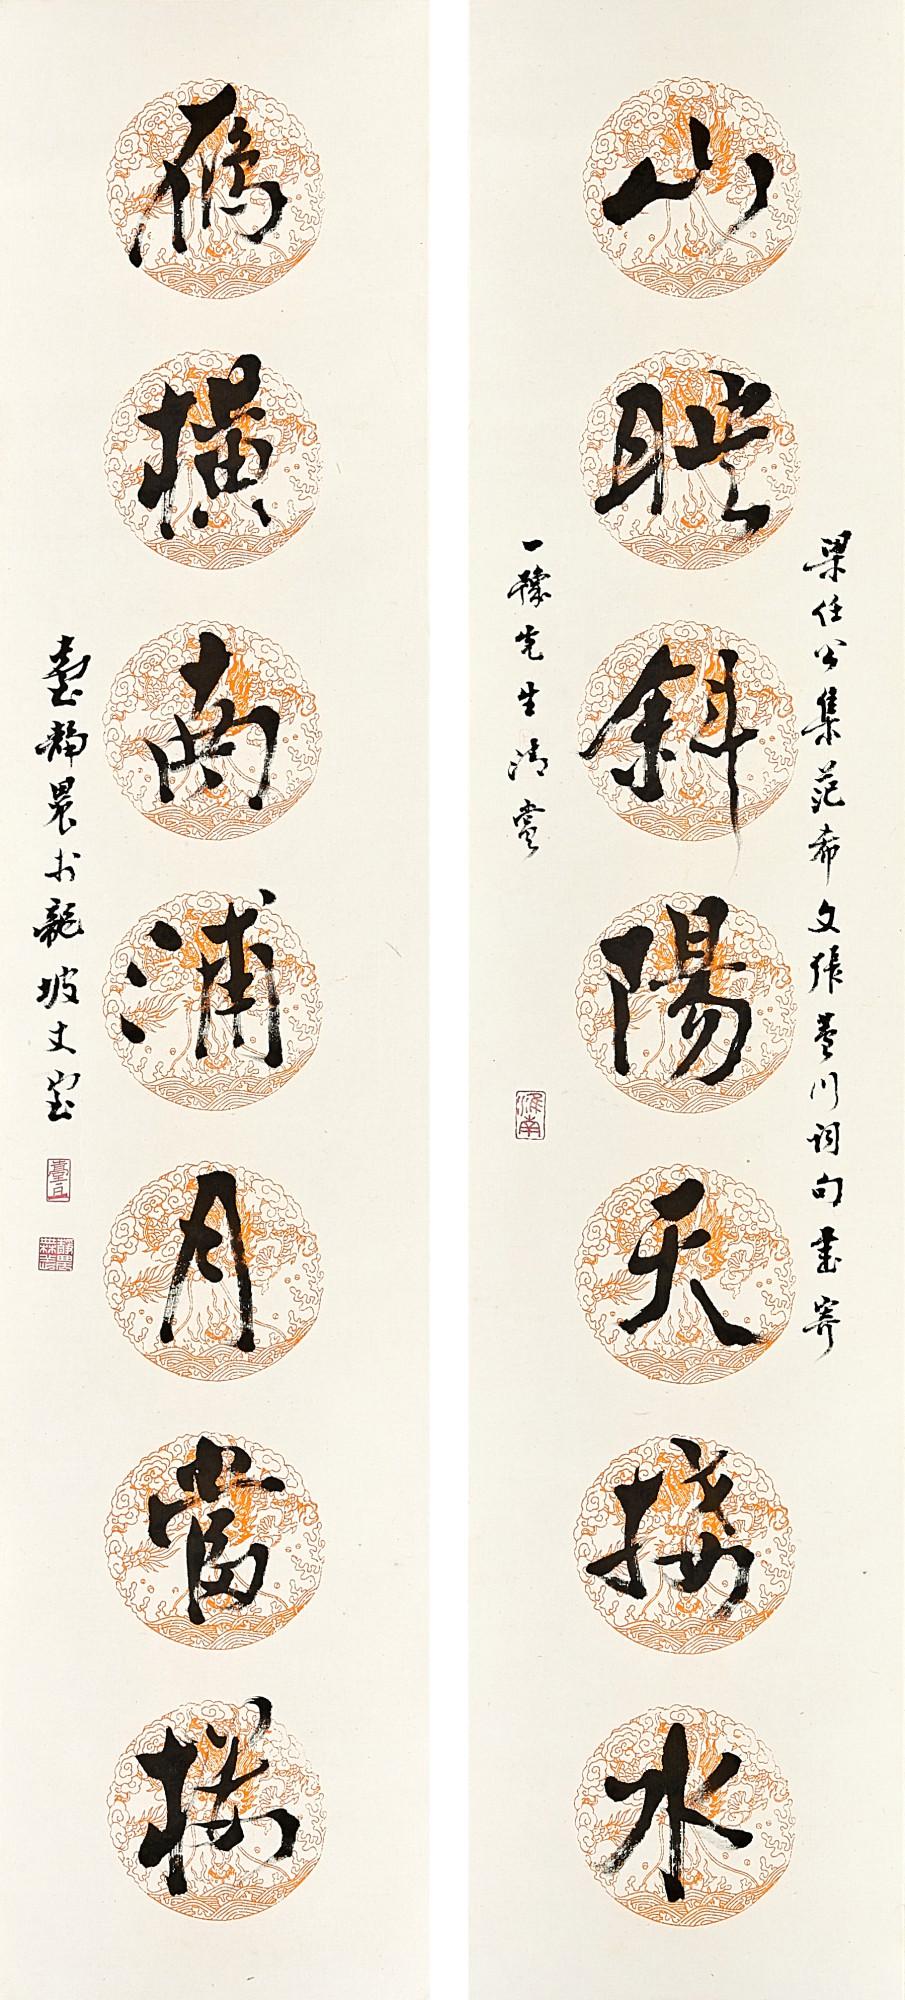 山映斜陽天接水
梁任公集范希文張蒼川詞句書寄
一豫先生清賞
淮南
雁橫南浦月當樓
臺靜農於龍坡丈室